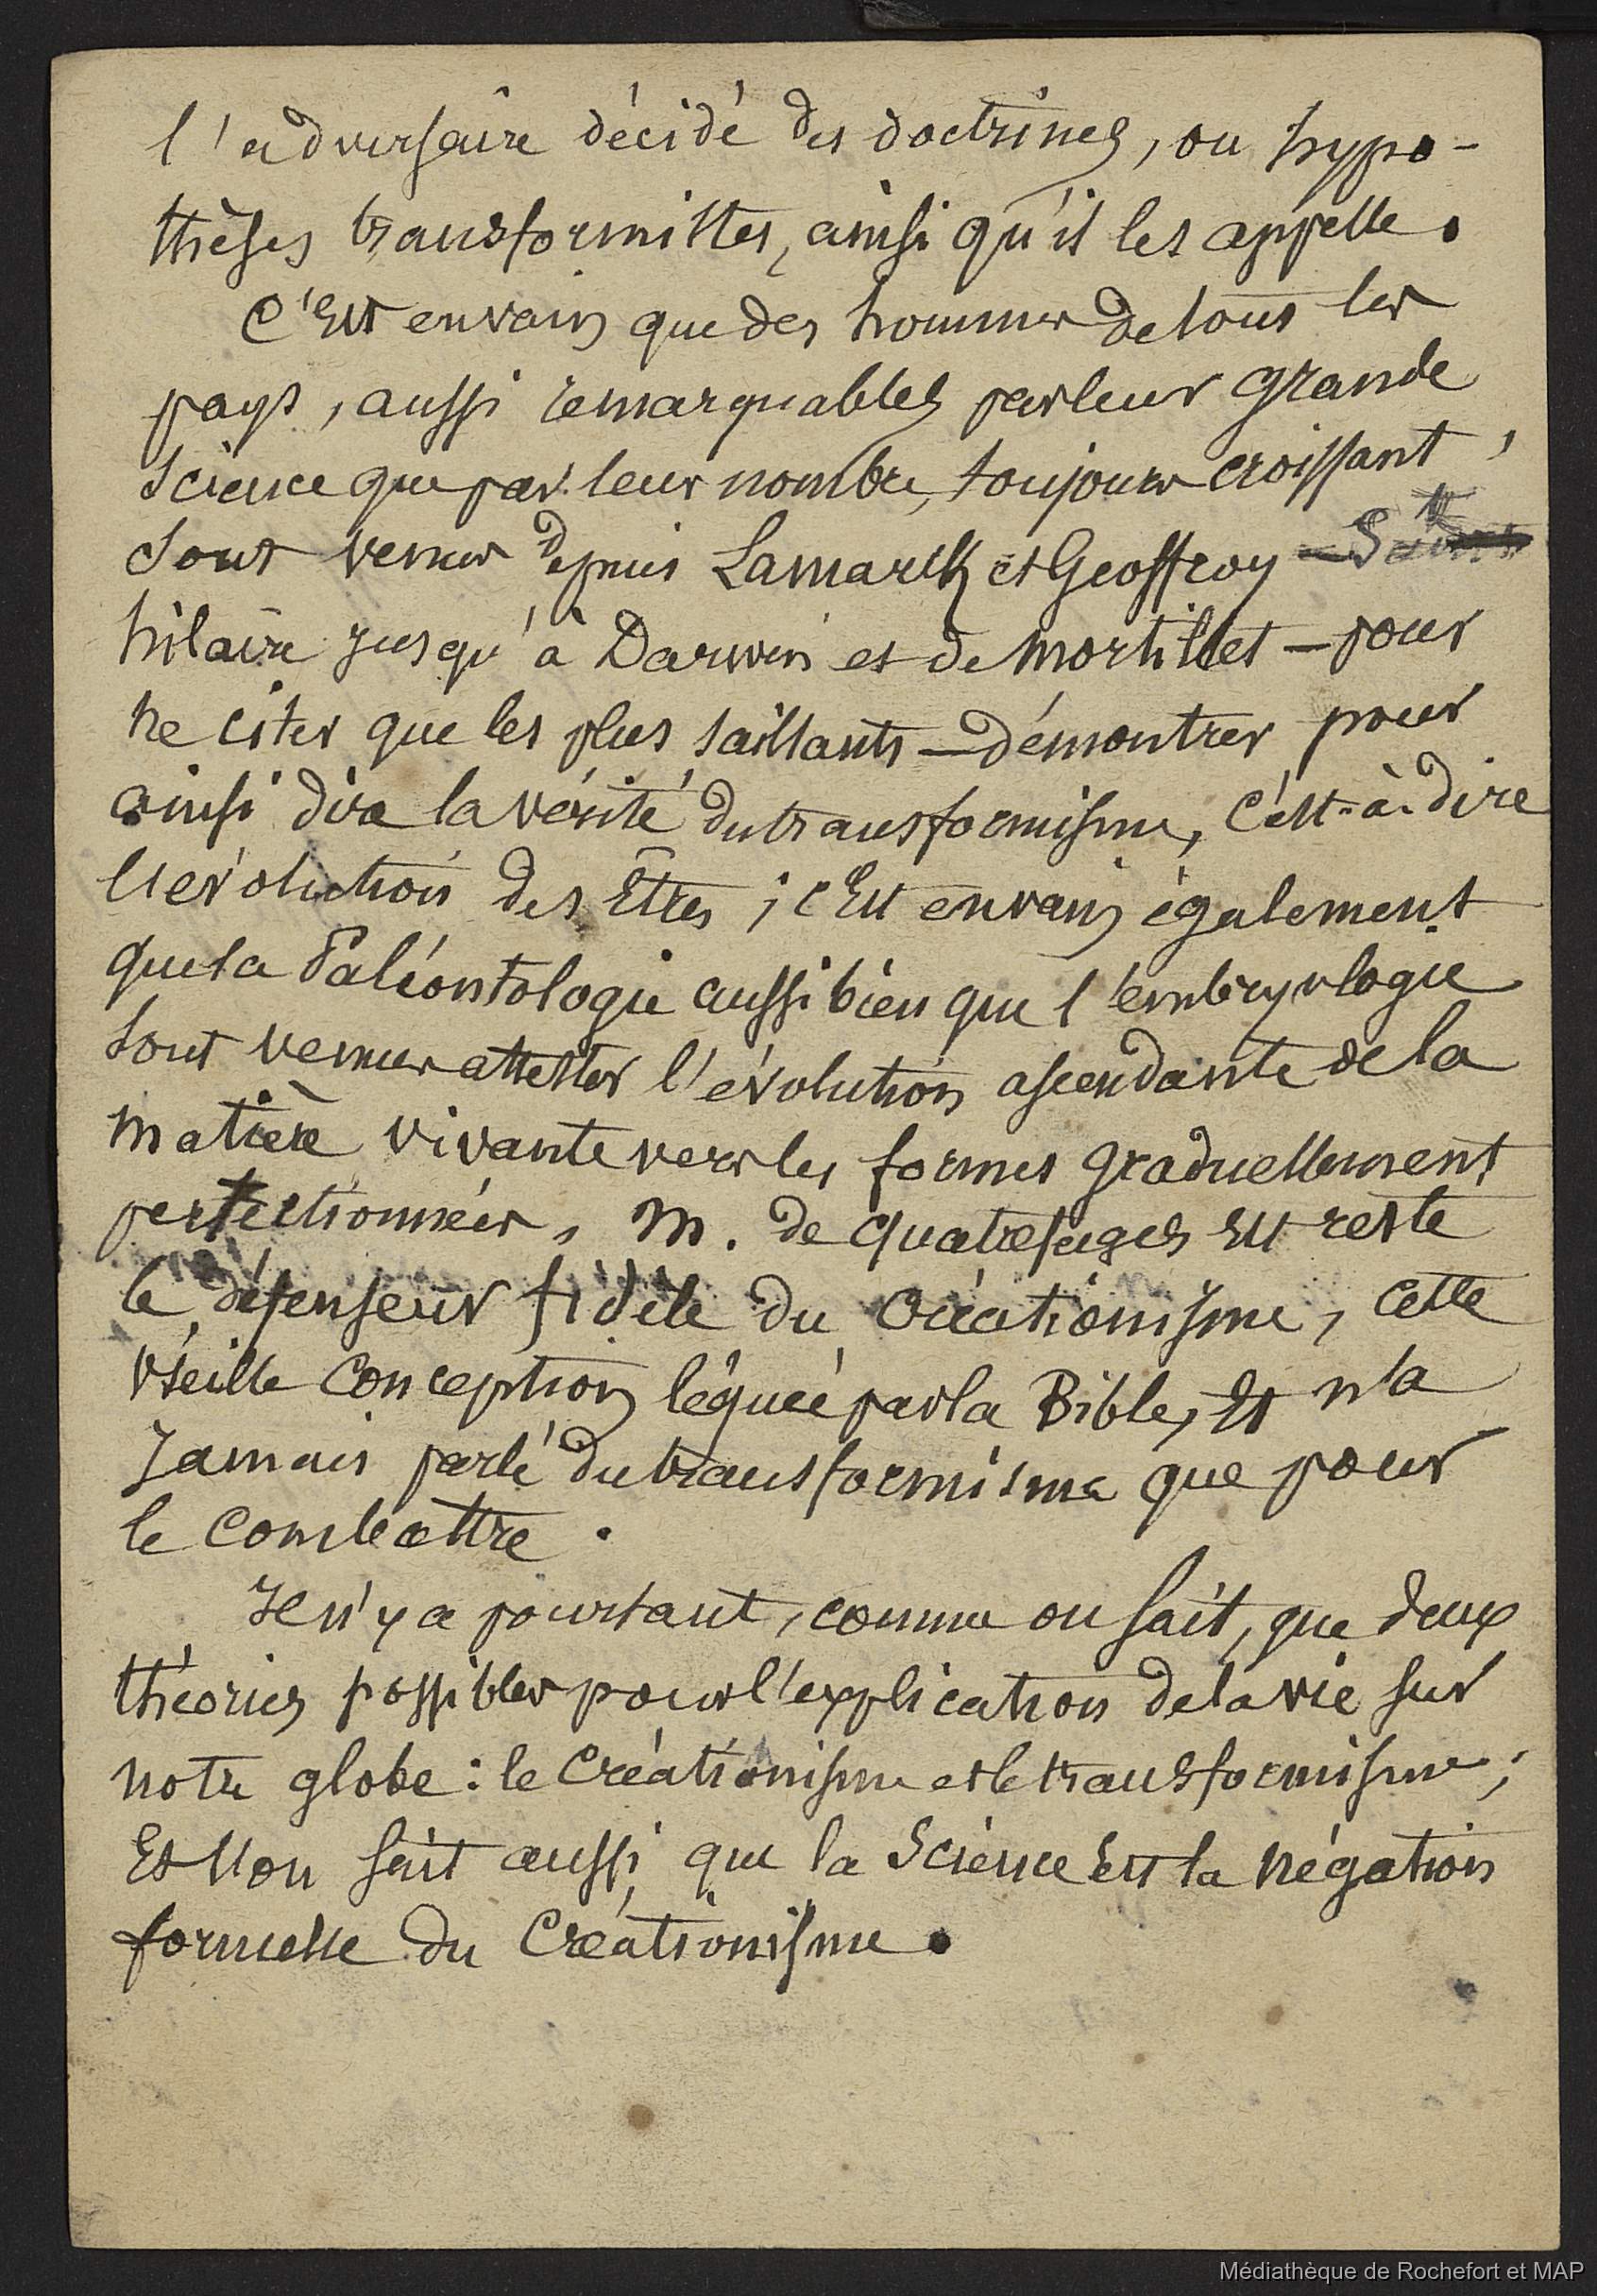 l'adversaire décidé des doctrines, ou hypo-
thèses transformistes, ainsi qu'il les appelle.
C'Est en vain que des hommes de tous les
pays, aussi remarquables par leur grande
Science que par leur nombre, toujours croissant,
sont venus depuis Lamarck et Geoffroy - St
hilaire jusqu'à Darwin et de Mortillet — pour
ne citer que les plus saillants — démontrer pour
ainsi dire la vérité du transformisme, C'est-à-dire
l'évolution des Êtres ; c'Est en vain également
que la Paléontologie aussi bien que l'embryologie
sont venues attester l'évolution ascendante de la
matière vivante vers les formes graduellement
perfectionnées, M. de Quatrefages Est resté
le défenseur fidèle du Créationisme, cette
vieille Conception léguée par la Bible, Et n'a
Jamais parlé du transformisme que pour
le Combattre.
Il n'y a pourtant, comme on sait, que deux
théories possibles pour l'explication de la vie sur
notre globe : le Créationisme et le transformisme ;
Et l'on sait aussi, que la Science Est la négation
formelle du Créationisme.
Médiathèque de Rochefort et MAP